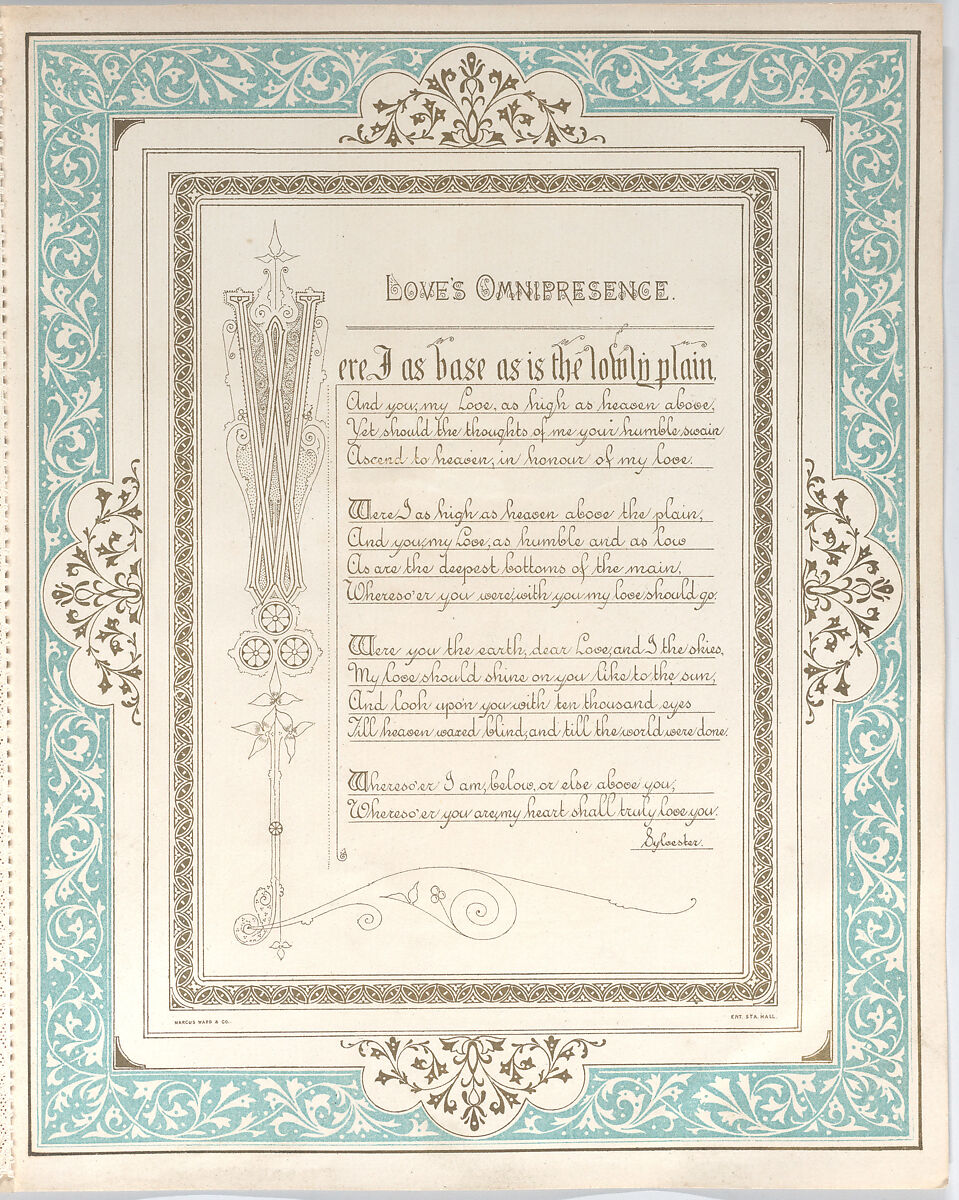 LOVE'S OMNIPRESENCE.
Were I as base as is the lowly plain,
And you, my Love, as high as heaven above,
Yet should the thoughts of me your humble swain
Ascend to heaven, in honour of my love.
Were I as high as heaven above the plain,
And you, my Love, as humble and as low
As are the deepest bottoms of the main,
Wheresoe'er you were, with you my love should go.
Were you the earth, dear Love, and I the skies,
My love should shine on you like to the sun,
And look upon you with ten thousand eyes
Till heaven waxed blind, and till the world were done.
Wheresoe'er I am, below, or else above you,
Wheresoe'er you are, my heart shall truly love you.
Sylvester.
MARCUS WARD & CO.
ENT. STA. HALL.